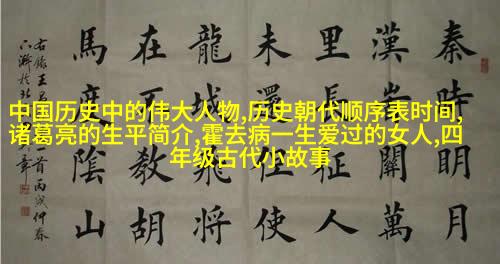 中国历史中的伟大人物,历史朝代顺序表时间,
诸葛亮的生平简介,霍去病一生爱过的女人,四
年级古代小故事
秦時明月
漢時關萬
里長征人
未還但使
龍城飛將
在不教胡
馬度陰山
右錄王昌
首丙戌仲春